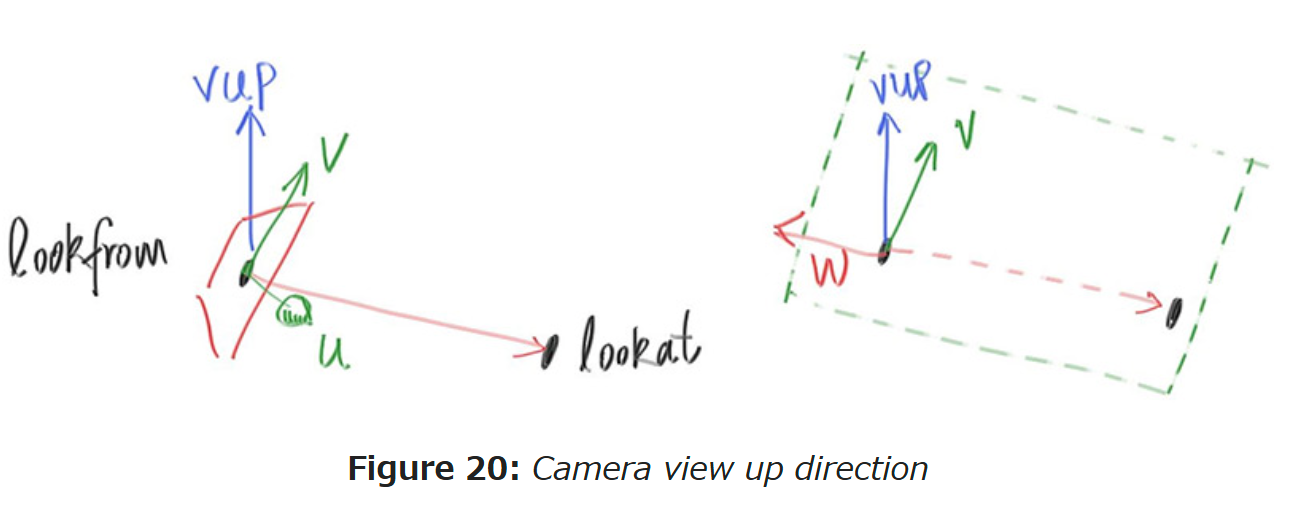 vup
v
lookfrom
u
lookat
vup
v
w
Figure 20: Camera view up direction